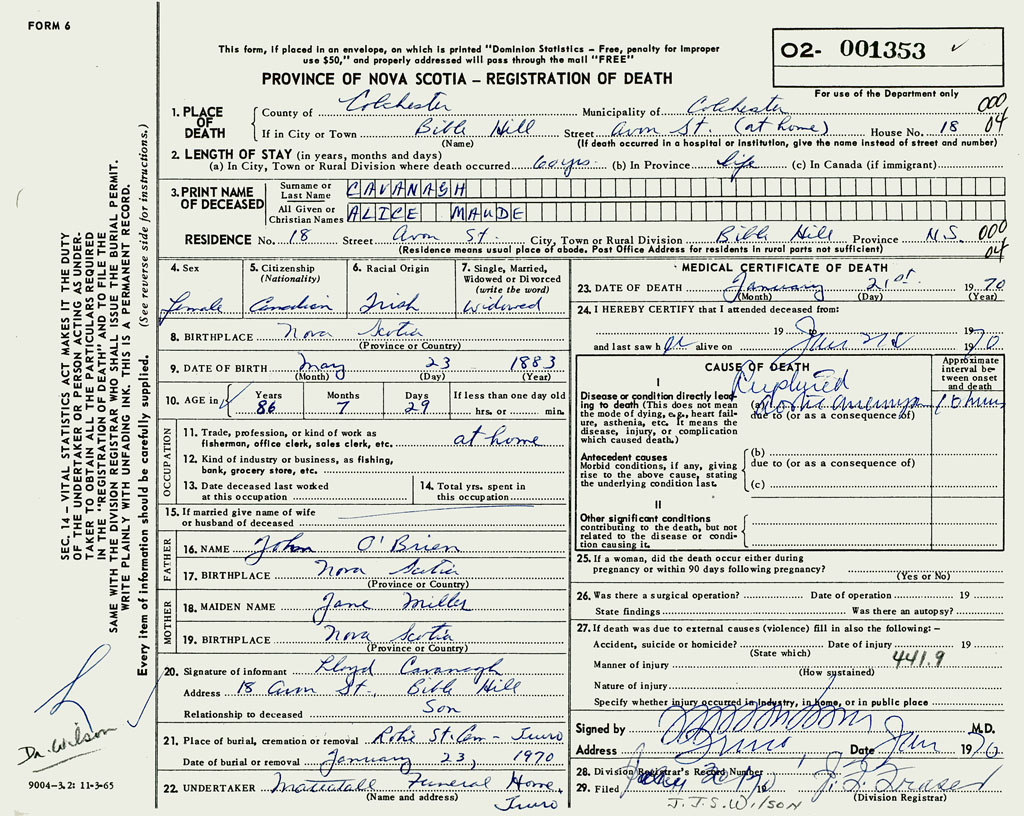 FORM 6
This form, if placed in an envelope, on which is printed "Dominion Statistics – Free, penalty for improper
use $50," and properly addressed will pass through the mail "FREE"
PROVINCE OF NOVA SCOTIA – REGISTRATION OF DEATH
02- 001353 ✓
For use of the Department only
1. PLACE OF DEATH
County of Colchester Municipality of Colchester 000
If in City or Town Bible Hill Street Avon St. (at home) House No. 18 04
(Name) (If death occurred in a hospital or institution, give the name instead of street and number)
2. LENGTH OF STAY (in years, months and days)
(a) In City, Town or Rural Division where death occurred 60 yrs. (b) In Province life (c) In Canada (if immigrant)
3. PRINT NAME OF DECEASED
Surname or Last Name CAVANAGH
All Given or Christian Names ALICE MAUDE
RESIDENCE No. 18 Street Avon St. City, Town or Rural Division Bible Hill Province N.S. 000
(Residence means usual place of abode. Post Office Address for residents in rural parts not sufficient) 04
4. Sex
Female
5. Citizenship
(Nationality)
Canadian
6. Racial Origin
Irish
7. Single, Married,
Widowed or Divorced
(write the word)
Widowed
8. BIRTHPLACE Nova Scotia
(Province or Country)
9. DATE OF BIRTH May 23 1883
(Month) (Day) (Year)
10. AGE in Years Months Days If less than one day old
86 7 29 hrs. or min.
OCCUPATION
11. Trade, profession, or kind of work as
fisherman, office clerk, sales clerk, etc. at home
12. Kind of industry or business, as fishing,
bank, grocery store, etc.
13. Date deceased last worked
at this occupation
14. Total yrs. spent in
this occupation
15. If married give name of wife
or husband of deceased
FATHER
16. NAME John O'Brien
17. BIRTHPLACE Nova Scotia
(Province or Country)
MOTHER
18. MAIDEN NAME Jane Miller
19. BIRTHPLACE Nova Scotia
(Province or Country)
20. Signature of informant Lloyd Cavanagh
Address 18 Avon St., Bible Hill
Relationship to deceased Son
21. Place of burial, cremation or removal Robie St. Cem - Truro
Date of burial or removal January 23, 1970
22. UNDERTAKER Mattatall Funeral Home,
(Name and address) Truro
MEDICAL CERTIFICATE OF DEATH
23. DATE OF DEATH January 21st 1970
(Month) (Day) (Year)
24. I HEREBY CERTIFY that I attended deceased from:
19 19
and last saw her alive on Jan 1970
CAUSE OF DEATH
Approximate
interval be-
tween onset
and death
I
Disease or condition directly lead-
ing to death (This does not mean
the mode of dying, e.g., heart fail-
ure, asthenia, etc. It means the
disease, injury, or complication
which caused death.)
Ruptured
(a) aortic aneurysm
due to (or as a consequence of)
Antecedent causes
Morbid conditions, if any, giving
rise to the above cause, stating
the underlying condition last.
(b)
due to (or as a consequence of)
(c)
II
Other significant conditions
contributing to the death, but not
related to the disease or condi-
tion causing it.
25. If a woman, did the death occur either during
pregnancy or within 90 days following pregnancy?
(Yes or No)
26. Was there a surgical operation? Date of operation 19
State findings Was there an autopsy?
27. If death was due to external causes (violence) fill in also the following: –
Accident, suicide or homicide? Date of injury 19
(State which) 441.9
Manner of injury
(How sustained)
Nature of injury
Specify whether injury occurred in industry, in home, or in public place
Signed by M.D.
Address Truro Date Jan 1970
28. Division Registrar's Record Number
29. Filed 19
(Division Registrar)
J.J.S. WILSON
SEC. 14 – VITAL STATISTICS ACT MAKES IT THE DUTY
OF THE UNDERTAKER OR PERSON ACTING AS UNDER-
TAKER TO OBTAIN ALL THE PARTICULARS REQUIRED
IN THE "REGISTRATION OF DEATH" AND TO FILE THE
SAME WITH THE DIVISION REGISTRAR WHO SHALL ISSUE THE BURIAL PERMIT.
WRITE PLAINLY WITH UNFADING INK. THIS IS A PERMANENT RECORD.
Every item of information should be carefully supplied. (See reverse side for instructions.)
Dr. Wilson
9004-3.2: 11-3-65